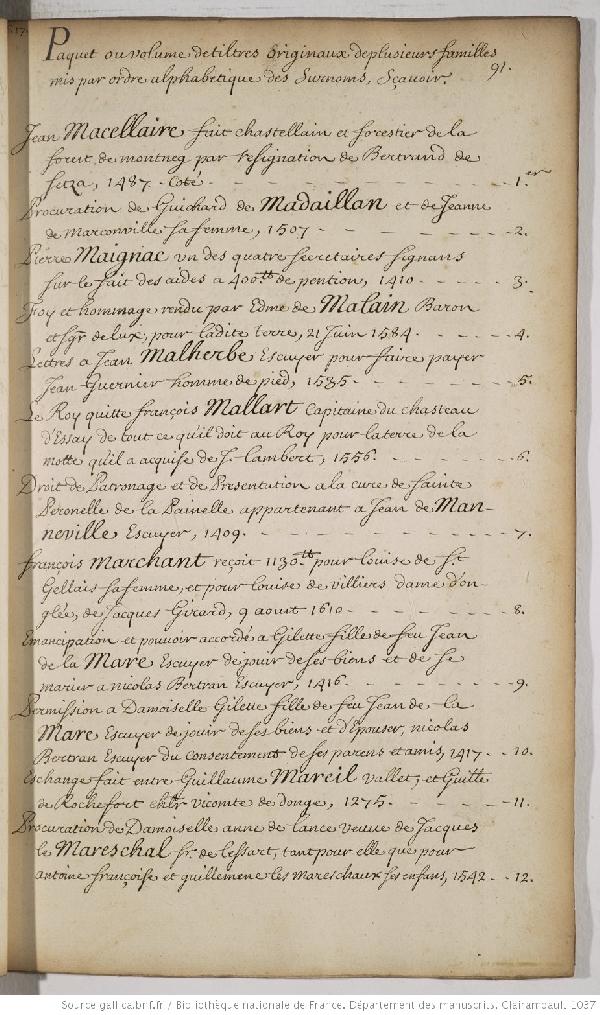 Paquet ou volume de tiltres originaux de plusieurs familles
mis par ordre alphabetique des Surnoms, Sçavoir.
91.
Jean Macellaire fait chastellain et forestier de la
forest de montneg par resignation de Bertrand de
1487. Coté - - - 1.er
Procuration de Guichard de Madaillan et de Jeanne
de Marconville sa femme, 1507 - - - 2.
Pierre Maignac un des quatre secretaires signans
sur le fait des aides a 400tt de pention, 1410 - - - 3.
Foy et hommage rendu par Edme de Malain Baron
et sgr de lux, pour ladite terre, 21 Juin 1584. - - - 4.
Lettres a Jean Malherbe Escuyer pour faire payer
Jean Guernier homme de pied, 1535 - - - 5.
Le Roy quitte françois Mallart Capitaine du chasteau
d'Essay de tout ce qu'il doit au Roy pour la terre de la
motte qu'il a acquise de J. Lambert, 1556. - - - 6.
Droit de Patronage et de Presentation a la cure de sainte
Peronelle de la appartenant a Jean de Man-
neville Escuyer, 1409. - - - 7.
françois marchant reçoit 1130tt pour louise de st.
Gellais sa femme, et pour louise de villiers dame d'on-
glée, de Jacques Girard, 9 aoust 1610 - - - 8.
Emancipation et pouvoir accordé a Gilette fille de feu Jean
de la Mare Escuyer de jouir de ses biens et de se
marier a nicolas Bertran Escuyer, 1416 - - - 9.
Permission a Damoiselle Gilette fille de feu Jean de la
Mare Escuyer de jouir de ses biens et d'Epouser, nicolas
Bertran Escuyer du consentement de ses parens et amis, 1417 - - 10.
Eschange fait entre Guillaume Mareil vallet, et Guille
de Rochefort chlr vicomte de Donge, 1275. - - - 11.
Procuration de Damoiselle anne de Lance veuve de Jacques
le Mareschal sr. de lessart, tant pour elle que pour
antoine françoise et guillemene les Mareschaux ses enfans, 1542 - - 12.
Source gallica.bnf.fr / Bibliothèque nationale de France. Département des manuscrits. Clairambault 1037